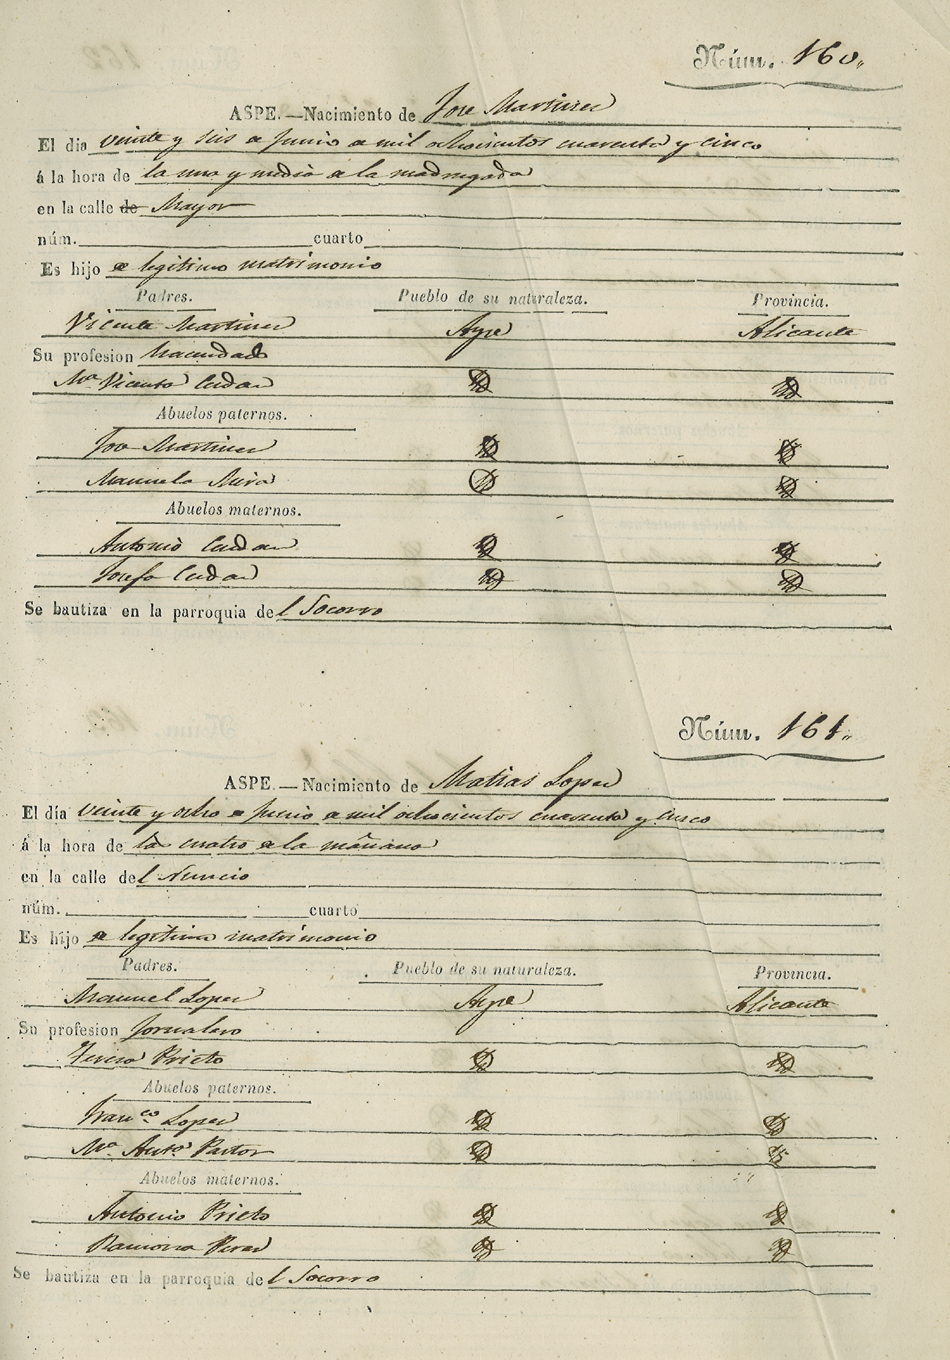 Núm. 160.
ASPE.—Nacimiento de Jose Martinez
El dia veinte y seis de Junio de mil ochocientos cuarenta y cinco
á la hora de la una y media de la madrugada
en la calle de Mayor
núm. cuarto
Es hijo de legitimo matrimonio
Padres. Pueblo de su naturaleza. Provincia.
Vicente Martinez Aspe Alicante
Su profesion Hacendado
Mª Vicenta Id Id
Abuelos paternos.
Jose Martinez Id Id
Manuela Mira Id Id
Abuelos maternos.
Antonio Id Id
Josefa Id Id
Se bautiza en la parroquia del Socorro
Núm. 161.
ASPE.—Nacimiento de Matias Lopez
El día veinte y ocho de Junio de mil ochocientos cuarenta y cinco
á la hora de las cuatro de la mañana
en la calle del Nuncio
núm. cuarto
Es hijo de legitimo matrimonio
Padres. Pueblo de su naturaleza. Provincia.
Manuel Lopez Aspe Alicante
Su profesion Jornalero
Teresa Prieto Id Id
Abuelos paternos.
Franco Lopez Id Id
Mª Antª Pastor Id Id
Abuelos maternos.
Antonio Prieto Id Id
Ramona Perez Id Id
Se bautiza en la parroquia del Socorro